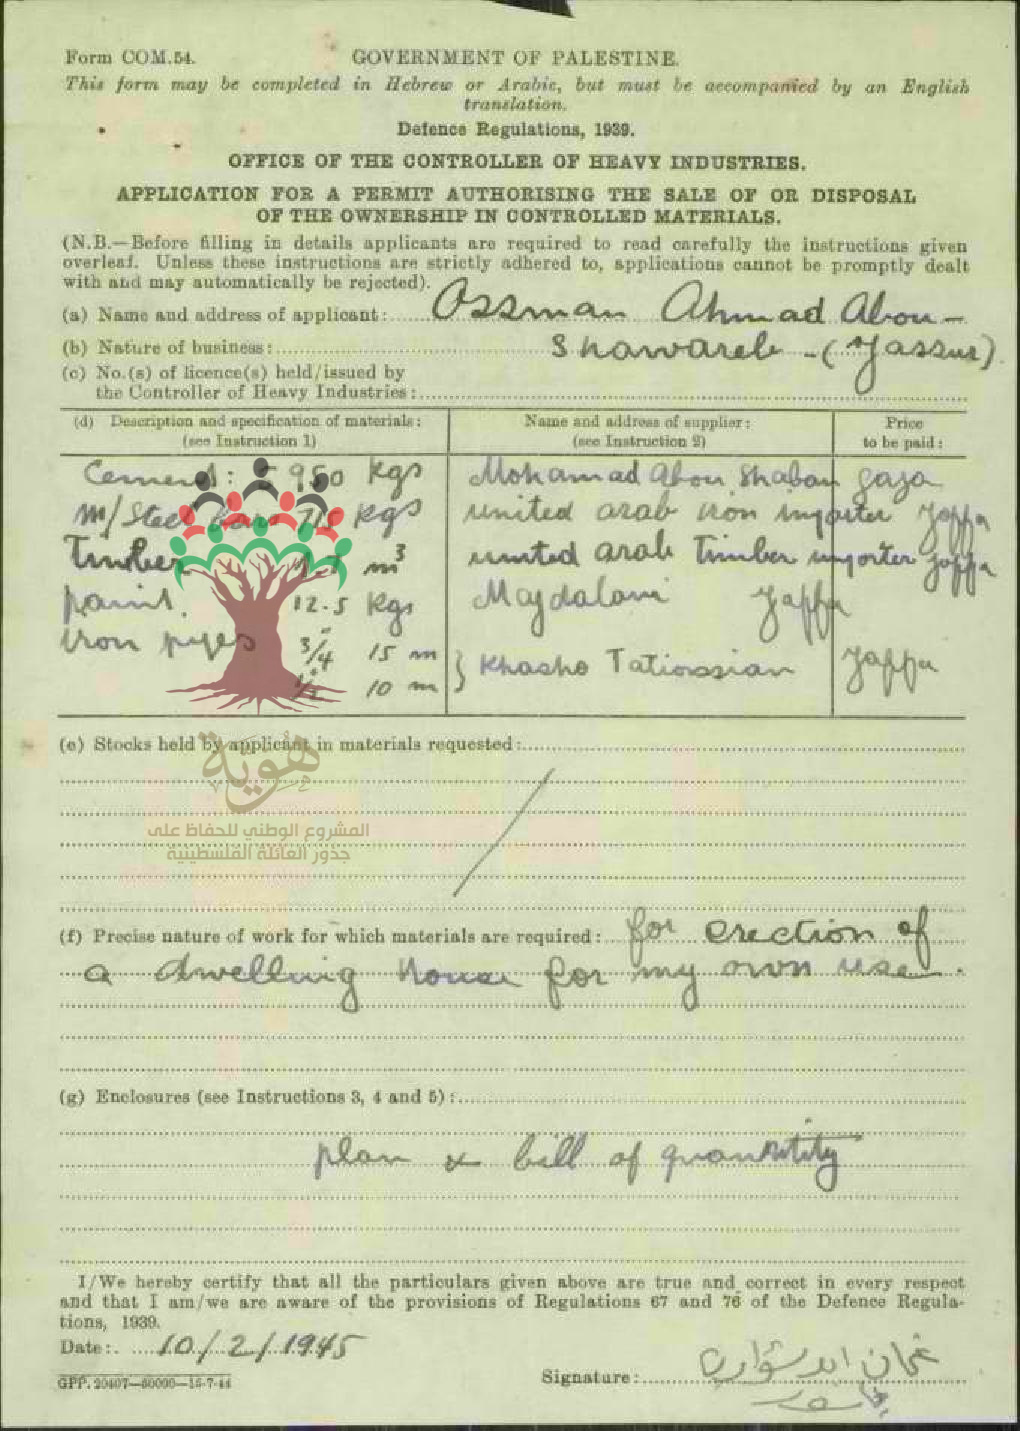 Form COM.54.
GOVERNMENT OF PALESTINE.
This form may be completed in Hebrew or Arabic, but must be accompanied by an English
translation.
Defence Regulations, 1939.
OFFICE OF THE CONTROLLER OF HEAVY INDUSTRIES.
APPLICATION FOR A PERMIT AUTHORISING THE SALE OF OR DISPOSAL
OF THE OWNERSHIP IN CONTROLLED MATERIALS.
(N.B.—Before filling in details applicants are required to read carefully the instructions given
overleaf. Unless these instructions are strictly adhered to, applications cannot be promptly dealt
with and may automatically be rejected).
(a) Name and address of applicant: Ossman Ahmad Abou-
(b) Nature of business: Shawareb - (Yassur)
(c) No.(s) of licence(s) held/issued by
the Controller of Heavy Industries:
(d) Description and specification of materials: Name and address of supplier: Price
(see Instruction 1) (see Instruction 2) to be paid:
Cement: 950 kgs Mohamad Abou Shaban Gaza
m/Steel bars kgs united arab iron importer Jaffa
Timber m³ united arab Timber importer Jaffa
paint. 12.5 kgs Majdalani Jaffa
iron pipes 3/4" 15 m
1/2" 10 m } Khasho Tatiossian Jaffa
(e) Stocks held by applicant in materials requested:
هوية
المشروع الوطني للحفاظ على
جذور العائلة الفلسطينية
(f) Precise nature of work for which materials are required: for erection of
a dwelling house for my own use.
(g) Enclosures (see Instructions 3, 4 and 5):
plan & bill of quantity
I/We hereby certify that all the particulars given above are true and correct in every respect
and that I am/we are aware of the provisions of Regulations 67 and 76 of the Defence Regula-
tions, 1939.
Date: 10/2/1945
GPP. 20407—60000—15-7-44
Signature: عثمان ابو شوارب